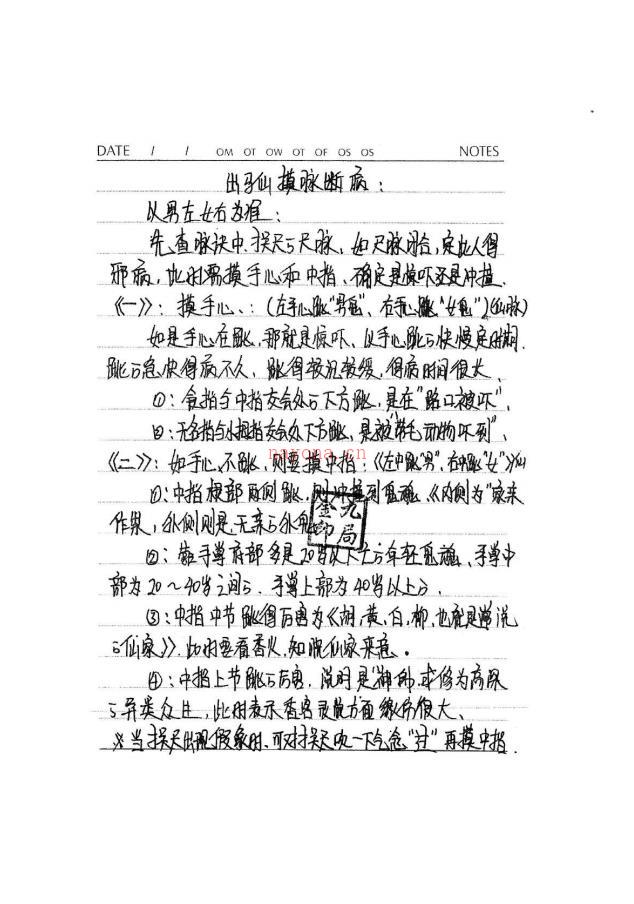 DATE / / OM OT OW OT OF OS OS NOTES
出马仙摸脉断病:
以男左女右为准:
先查脉诀中、尺与尺脉、如尺脉闭合,定此人得
邪病,此时需要摸手心和中指、确定是惊吓还是冲撞.
《一》:摸手心、:(左手心跳"男鬼"、右手心跳"女鬼")(仙脉)
如是手心在跳、那就是惊吓、以手心跳与快慢定时间.
跳与急快得病不久、跳得较缓、得病时间很久、
①:食指与中指交会处与下方跳,是在"路口被吓",
②:无名指与小拇指交会处下方跳、是被"带毛动物吓到",
《二》:如手心不跳、则要摸中指:《左中跳"男"、右中跳"女"》
①:中指根部两侧跳、则冲撞到鬼魂、《内侧为"家亲
作祟,外侧则是无亲与外鬼
②:掌府部多是20岁以下与年轻鬼魂、手掌中
部为20~40岁之间与、手掌上部为40岁以上与、
③:中指中节跳得厉害为《胡,黄,白,柳,也就是常说
与仙家》、此时要看香火,知晓仙家来意。
④:中指上节跳与厉害,说明是"神佛,或修为高深
与异类众生,此时表示香客灵魂方面缘份很大、
※当尺出现假象时、可对尺吹一下气念"" 再摸中指.
金九
印局
nayona.cn